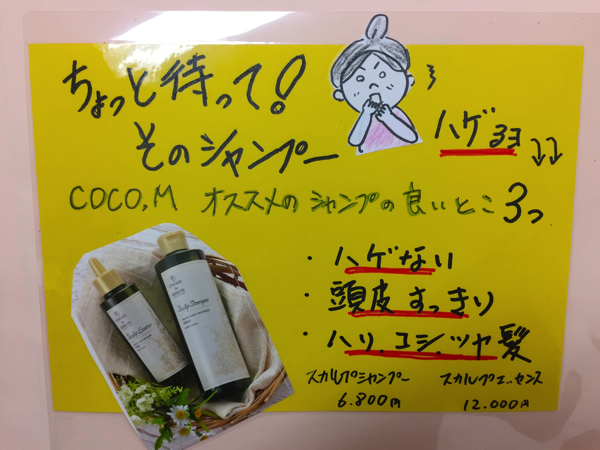 ちょっと待って!
そのシャンプー
ハゲるヨ
↓↓
COCO.M オススメの シャンプの良いとこ 3つ
・ハゲない
・頭皮すっきり
・ハリ.コシ.ツヤ髪
スカルプシャンプー
6.800円
スカルプエッセンス
12.000円
Scalp Essence
Scalp Shampoo